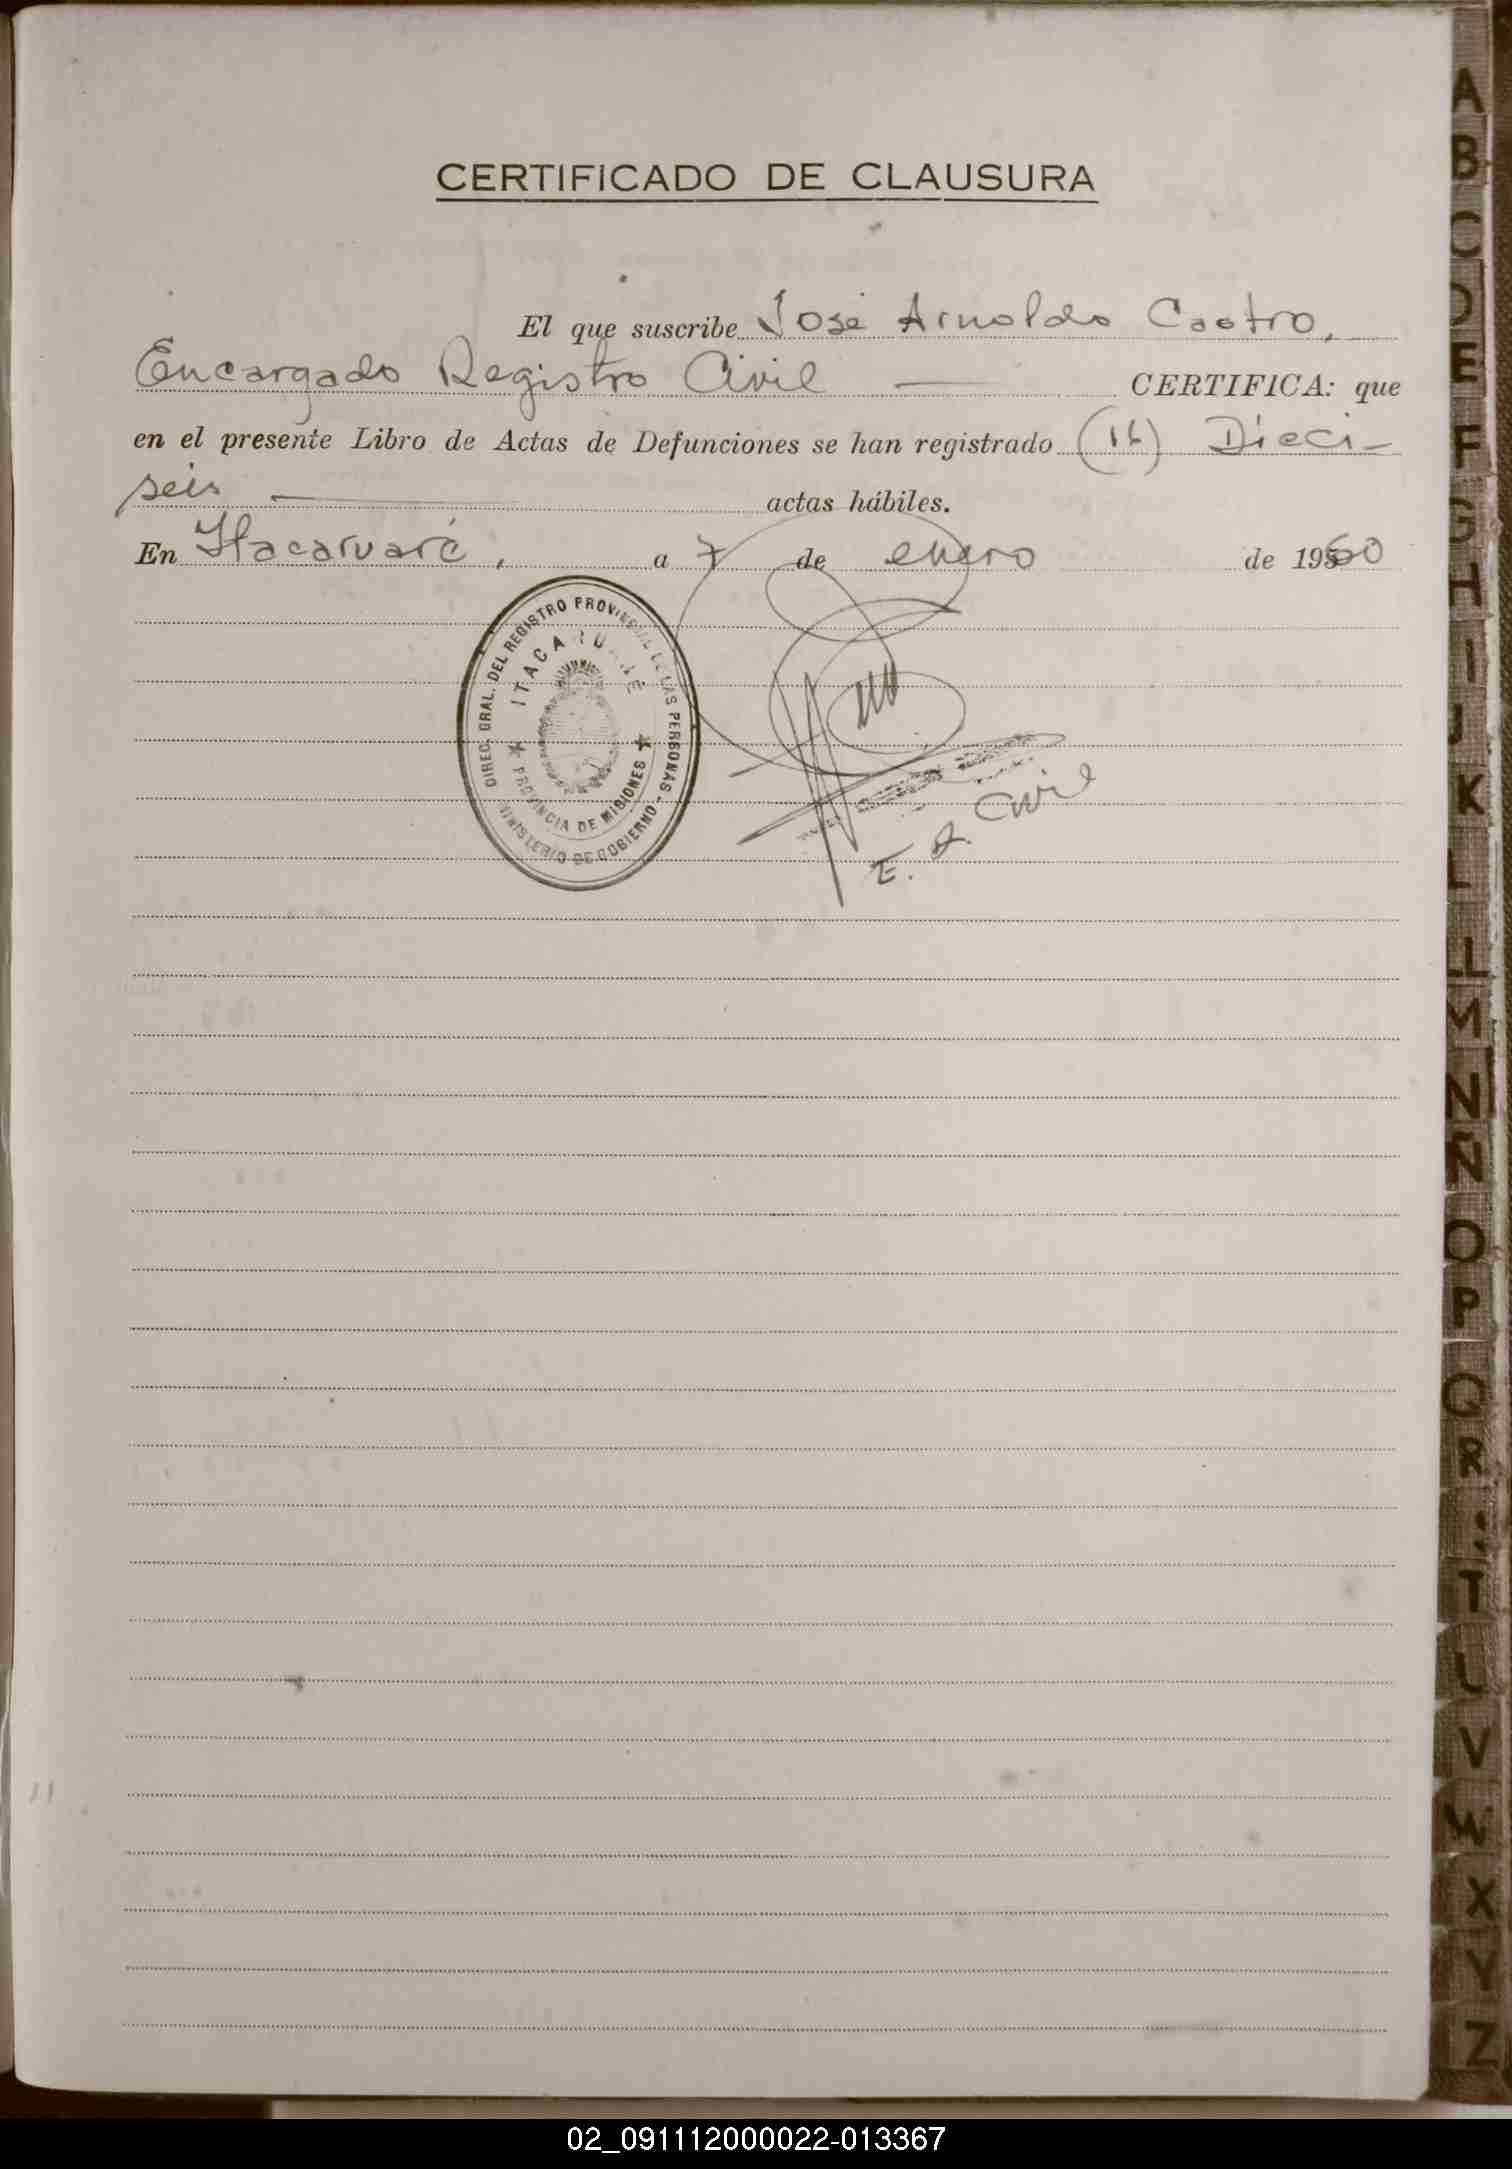 CERTIFICADO DE CLAUSURA
El que suscribe José Arnoldo Castro,
Encargado Registro Civil — CERTIFICA: que
en el presente Libro de Actas de Defunciones se han registrado (16) Dieci-
seis — actas hábiles.
En Itacaruaré, a 7 de enero de 1960
DIREC. GRAL. DEL REGISTRO PROVINCIAL DE LAS PERSONAS
MINISTERIO DE GOBIERNO -
ITACARUARE
★ PROVINCIA DE MISIONES ★
E. R. Civil
A
B
C
D
E
F
G
H
I
J
K
L
LL
M
N
Ñ
O
P
Q
R
T
U
V
W
X
Y
Z
02_091112000022-013367